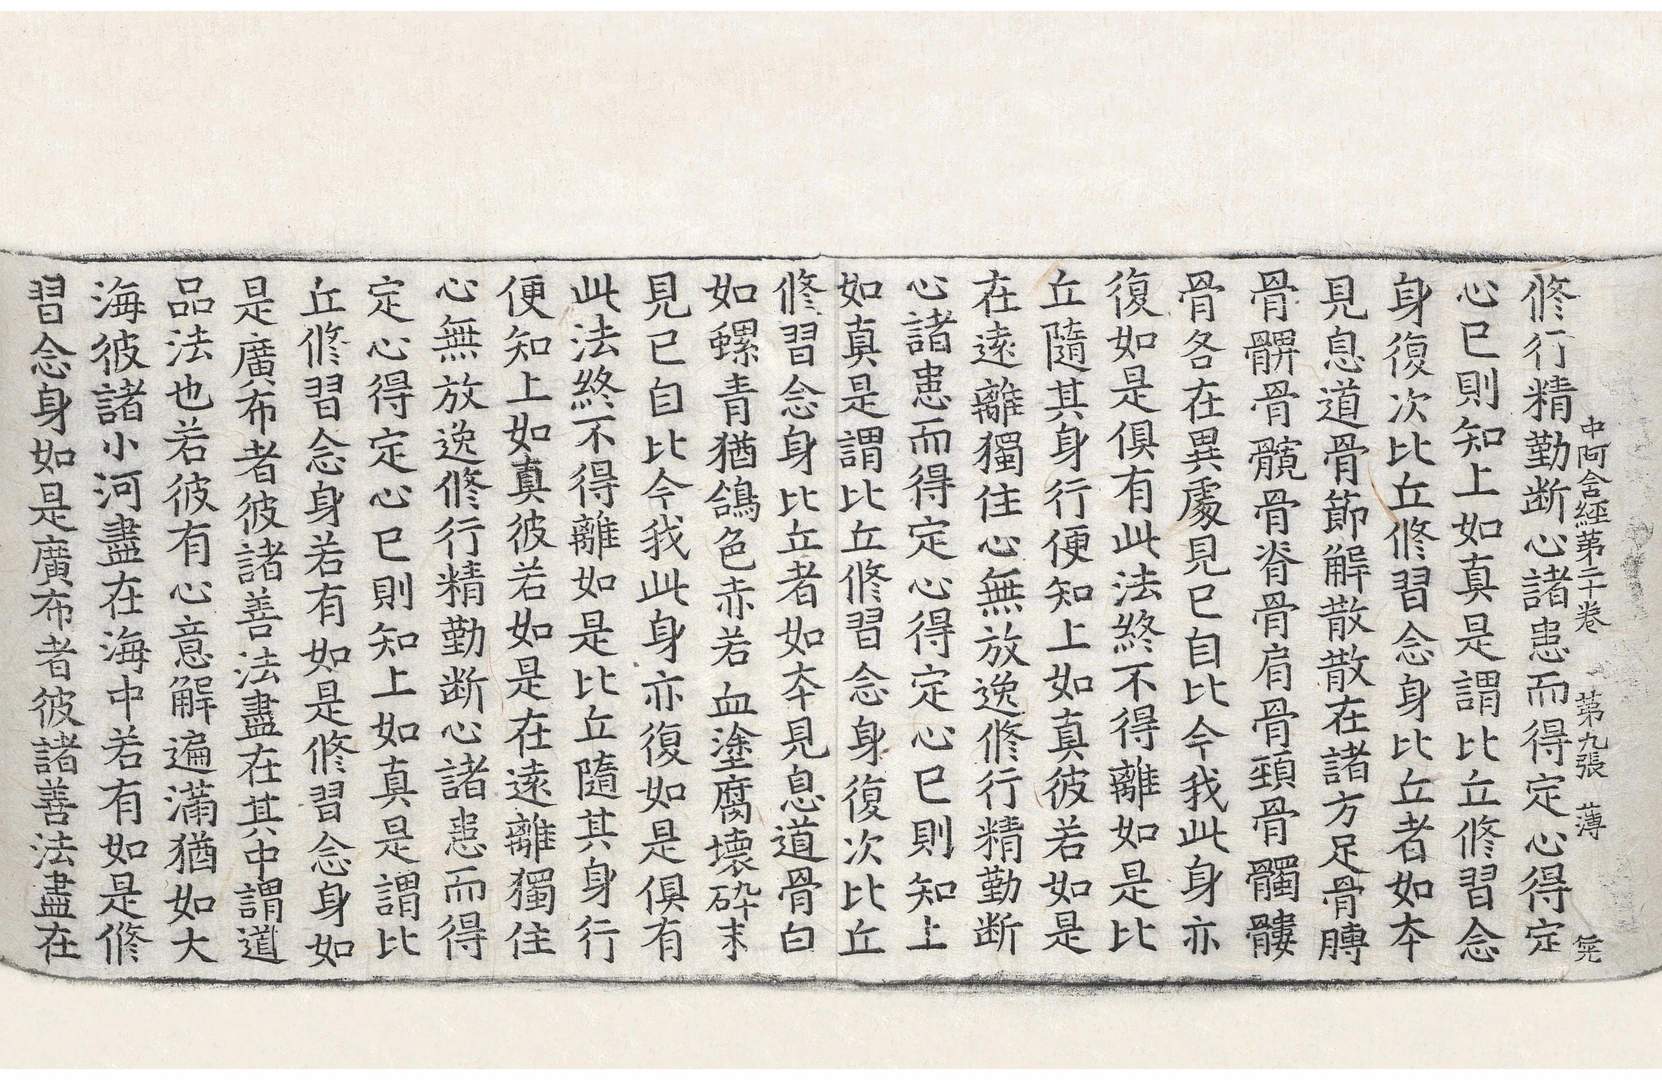 中阿含經第二十卷 第九張 薄
修行精勤断心諸患而得定心得定
心已則知上如真是謂比丘修習念
身復次比丘修習念身比丘者如本
見息道骨節解散散在諸方足骨膞
骨髀骨髖骨脊骨肩骨頸骨髑髏
骨各在異處見已自比今我此身亦
復如是俱有此法終不得離如是比
丘隨其身行便知上如真彼若如是
在遠離獨住心無放逸修行精勤断
心諸患而得定心得定心已則知上
如真是謂比丘修習念身復次比丘
修習念身比丘者如本見息道骨白
如螺青猶鴿色赤若血塗腐壞碎末
見已自比今我此身亦復如是俱有
此法終不得離如是比丘隨其身行
便知上如真彼若如是在遠離獨住
心無放逸修行精勤断心諸患而得
定心得定心已則知上如真是謂比
丘修習念身若有如是修習念身如
是廣布者彼諸善法盡在其中謂道
品法也若彼有心意解遍滿猶如大
海彼諸小河盡在海中若有如是修
習念身如是廣布者彼諸善法盡在